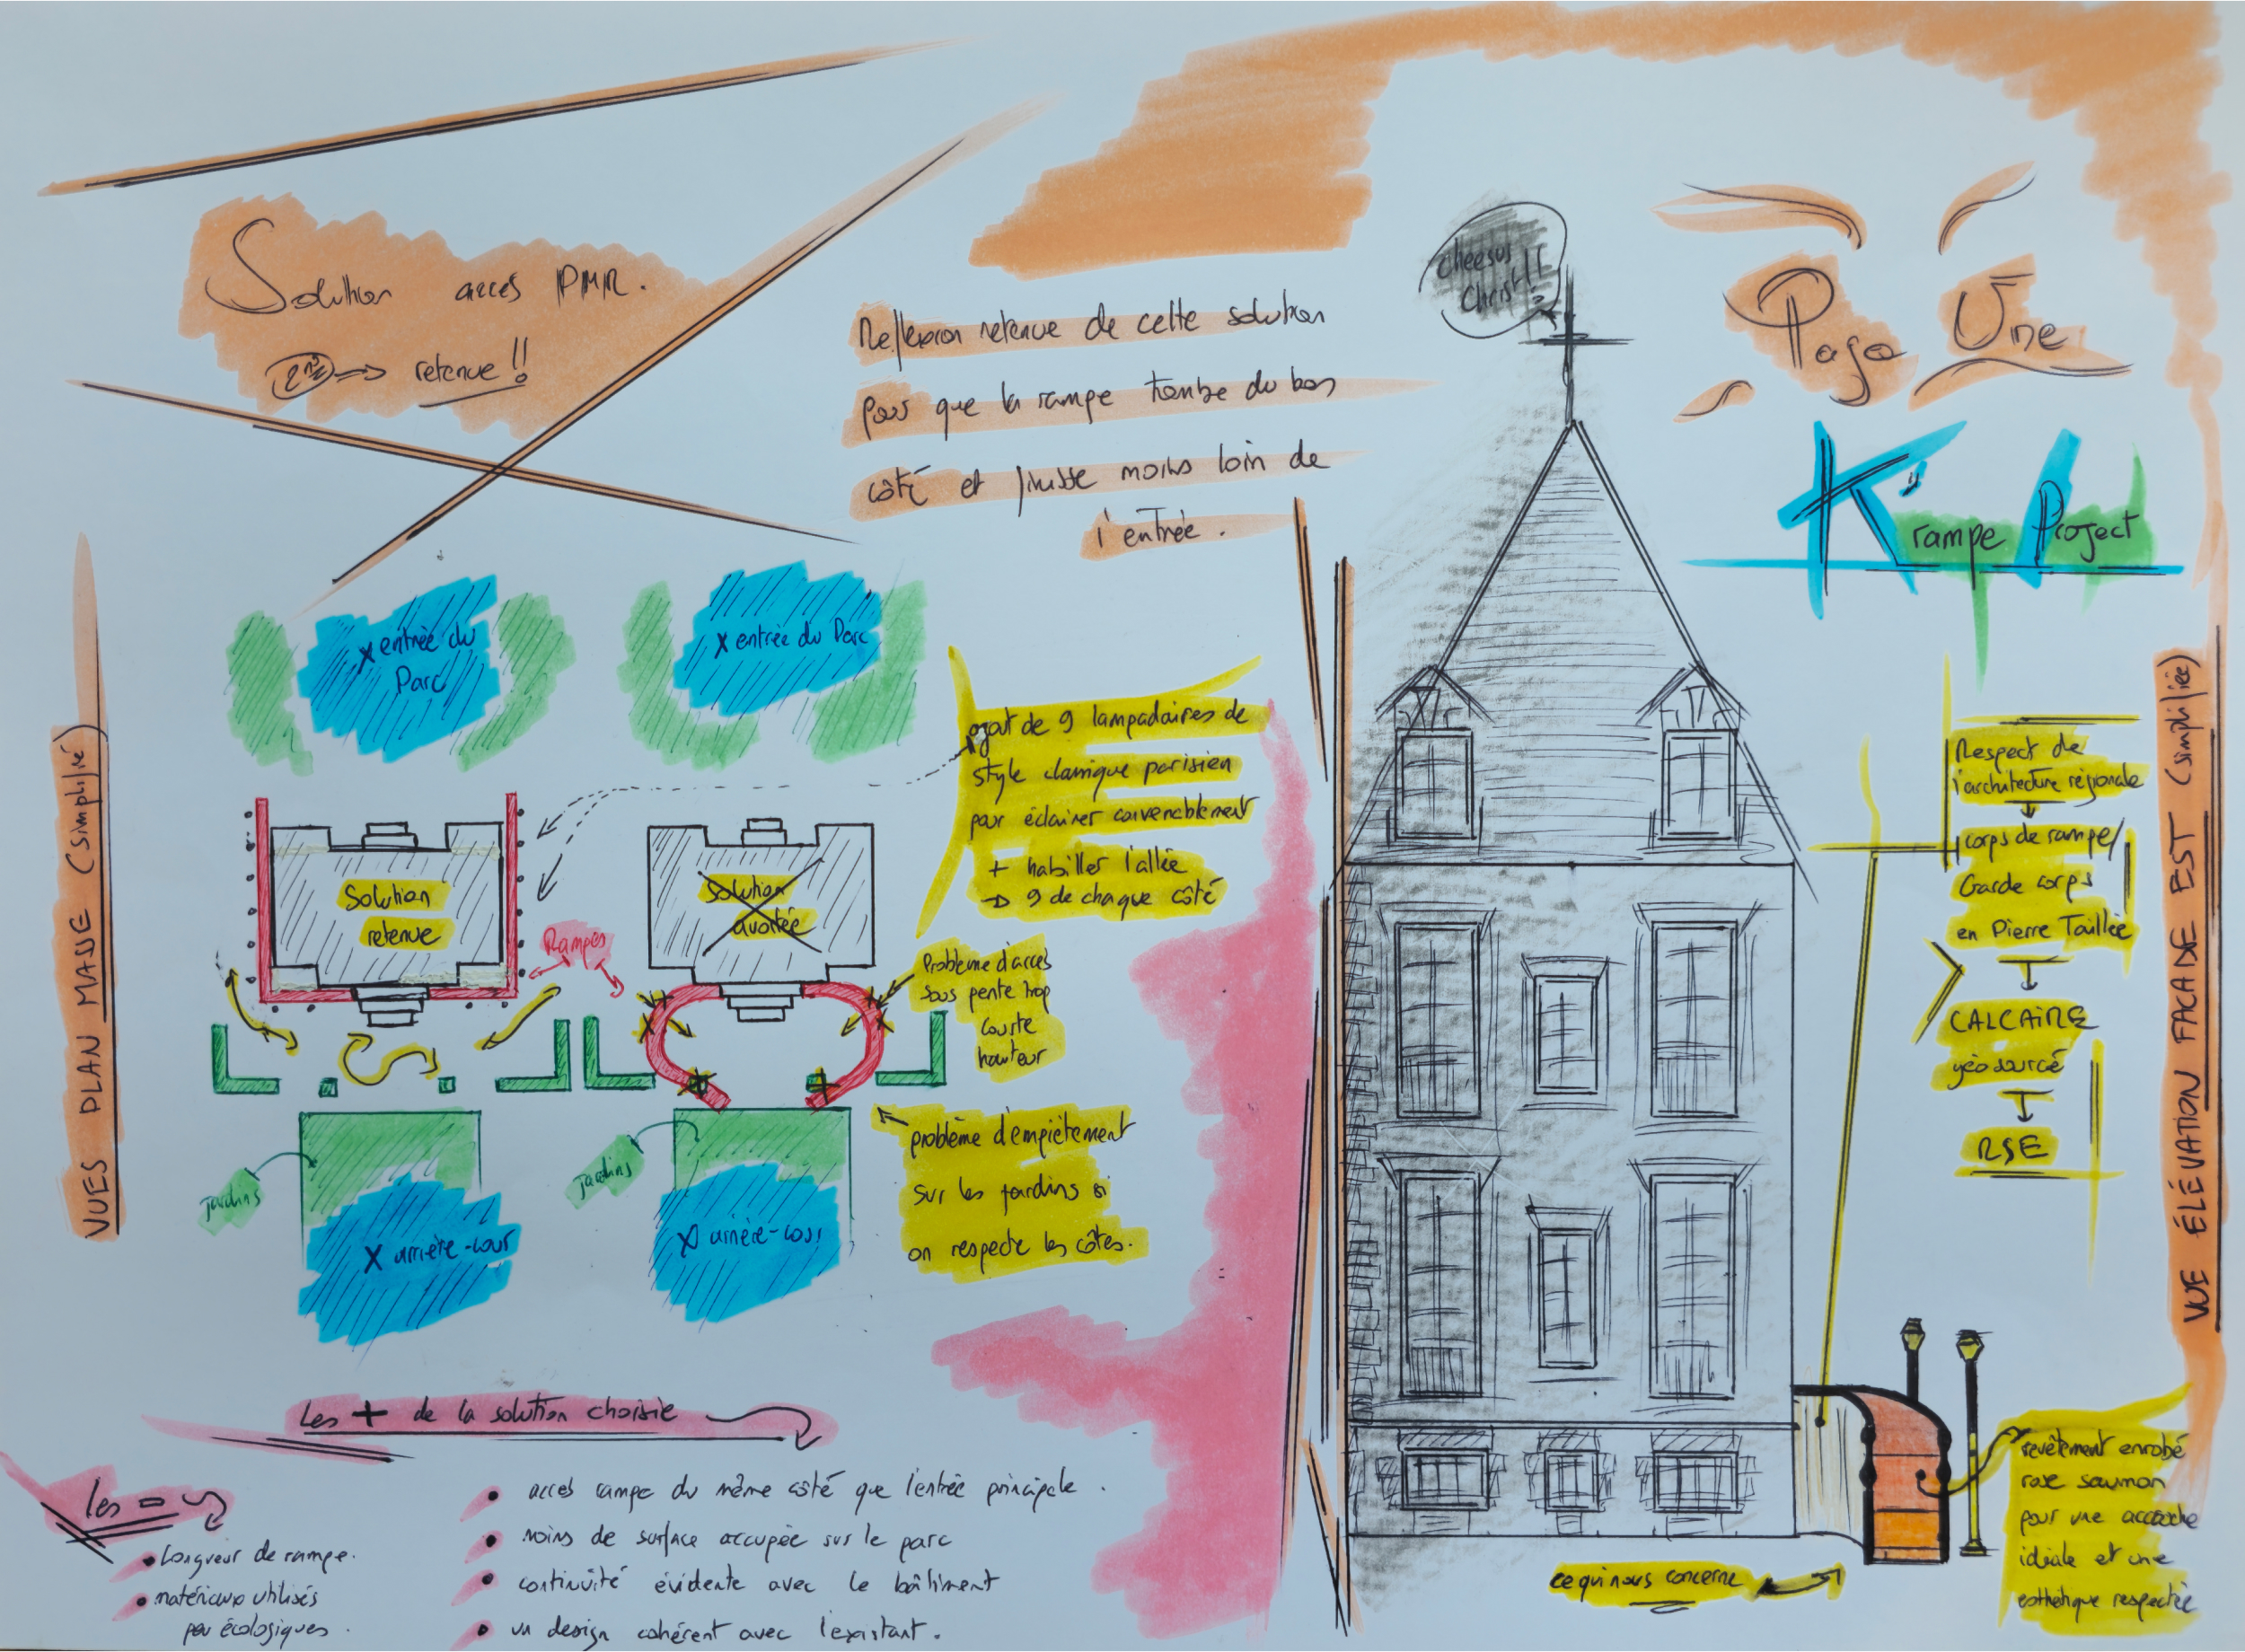 Solution accès PMR.
retenue !!
Reflexion retenue de cette solution
pour que la rampe tombe du bon
côté et finisse moins loin de
l'entrée.
cheesus
Christ!!
Page Une
K'rampe Project
VUES PLAN MASSE (simplifié)
X entrée du
Parc
X entrée du Parc
ajout de 9 lampadaires de
style classique parisien
pour éclairer convenablement
+ habiller l'allée
→ 9 de chaque côté
Solution
retenue
Solution
avortée
Rampes
Problème d'accès
sous pente trop
courte
hauteur
problème d'empiètement
sur les jardins si
on respecte les côtes.
jardins
jardins
X arrière-cour
X arrière-cour
Respect de
l'architecture régionale
corps de rampe/
Garde corps
en Pierre Taillée
CALCAIRE
géosourcé
RSE
VUE ÉLÉVATION FACADE EST (simplifiée)
revêtement enrobé
rose saumon
pour une accroche
idéale et une
esthétique respectée
ce qui nous concerne
Les + de la solution choisie
• accès rampe du même côté que l'entrée principale.
• moins de surface occupée sur le parc
• continuité évidente avec le bâtiment
• un design cohérent avec l'existant.
Les =
• Longueur de rampe.
• matériaux utilisés
peu écologiques.